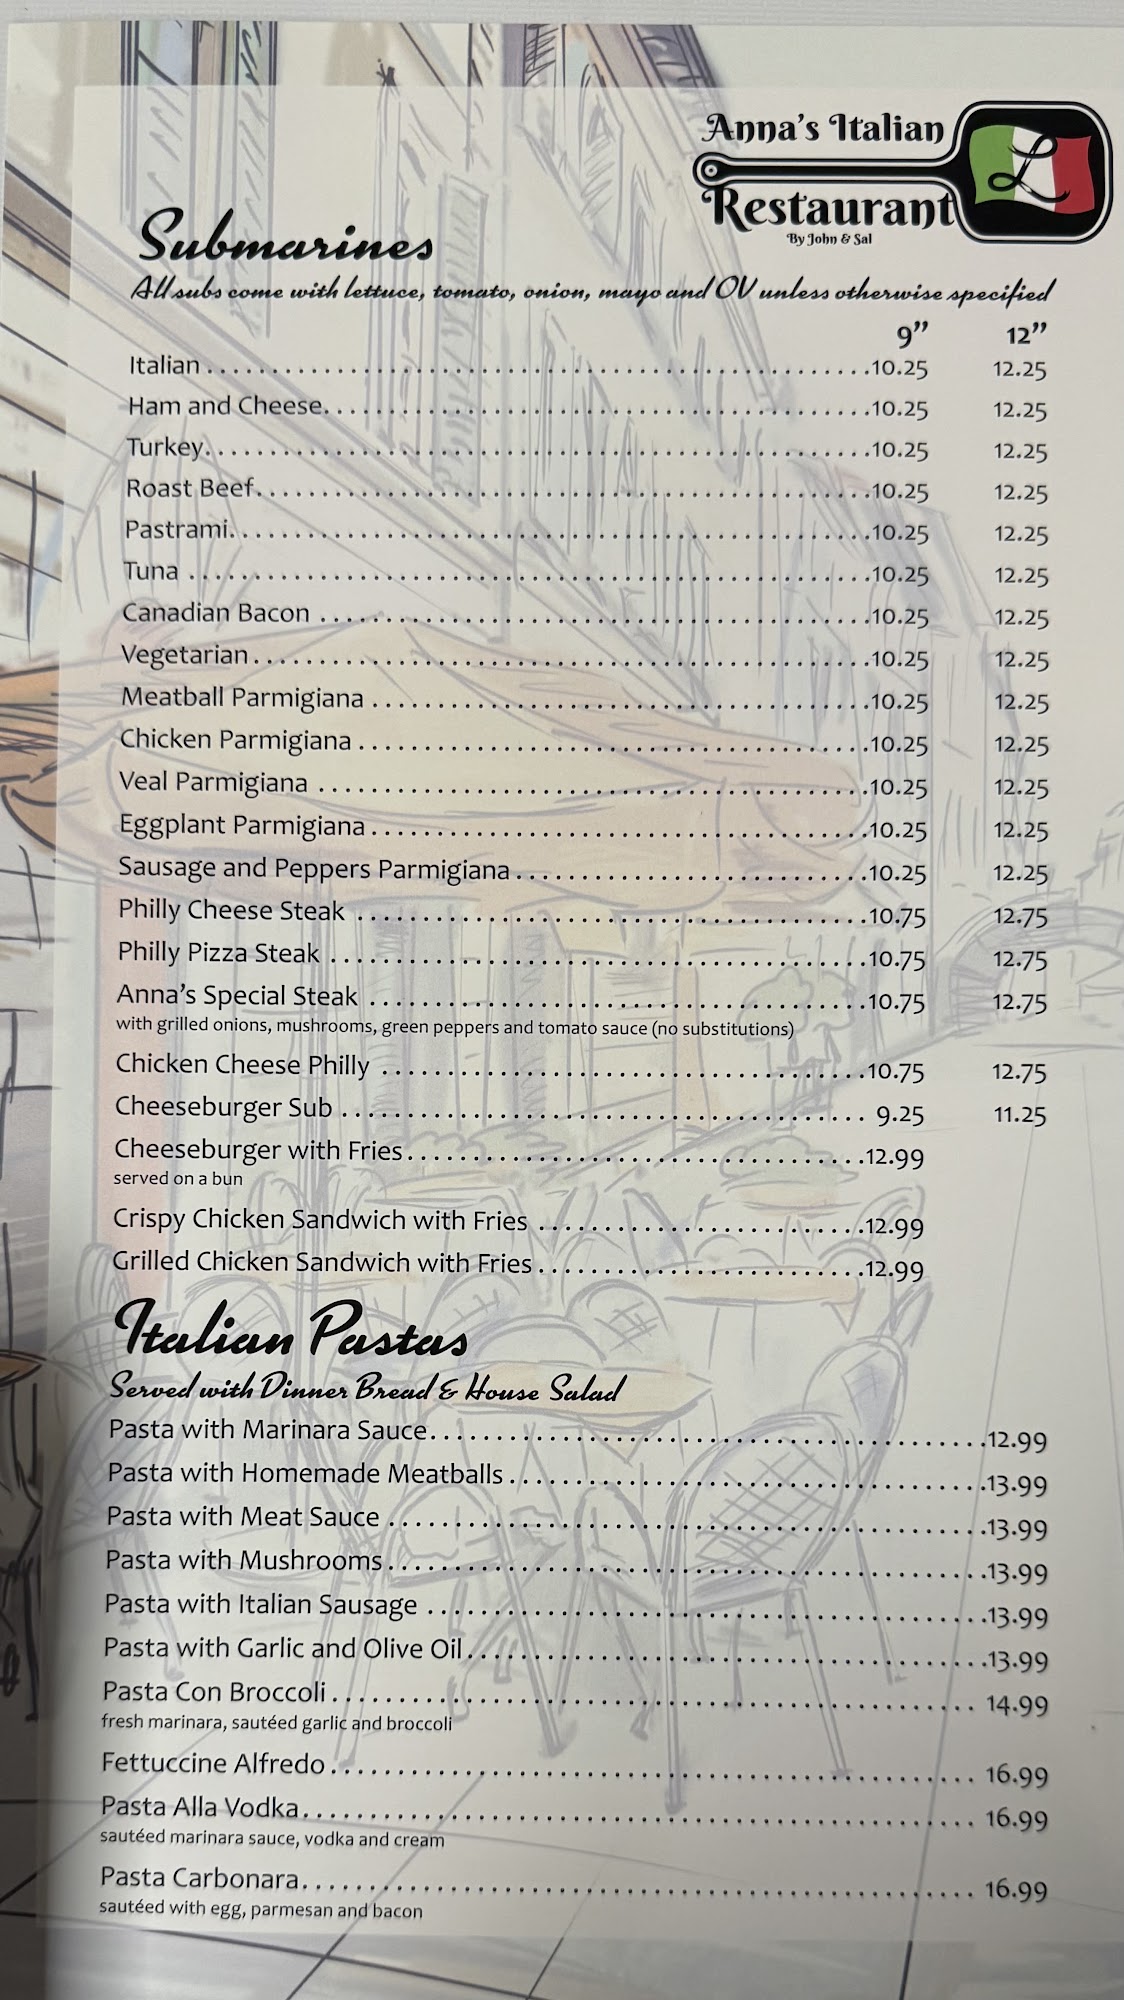 Anna's Italian
L
Restaurant
By John & Sal
Submarines
All subs come with lettuce, tomato, onion, mayo and OV unless otherwise specified
9” 12”
Italian ........ 10.25 12.25
Ham and Cheese ........ 10.25 12.25
Turkey ........ 10.25 12.25
Roast Beef ........ 10.25 12.25
Pastrami ........ 10.25 12.25
Tuna ........ 10.25 12.25
Canadian Bacon ........ 10.25 12.25
Vegetarian ........ 10.25 12.25
Meatball Parmigiana ........ 10.25 12.25
Chicken Parmigiana ........ 10.25 12.25
Veal Parmigiana ........ 10.25 12.25
Eggplant Parmigiana ........ 10.25 12.25
Sausage and Peppers Parmigiana ........ 10.25 12.25
Philly Cheese Steak ........ 10.75 12.75
Philly Pizza Steak ........ 10.75 12.75
Anna's Special Steak ........ 10.75 12.75
with grilled onions, mushrooms, green peppers and tomato sauce (no substitutions)
Chicken Cheese Philly ........ 10.75 12.75
Cheeseburger Sub ........ 9.25 11.25
Cheeseburger with Fries ........ 12.99
served on a bun
Crispy Chicken Sandwich with Fries ........ 12.99
Grilled Chicken Sandwich with Fries ........ 12.99
Italian Pastas
Served with Dinner Bread & House Salad
Pasta with Marinara Sauce ........ 12.99
Pasta with Homemade Meatballs ........ 13.99
Pasta with Meat Sauce ........ 13.99
Pasta with Mushrooms ........ 13.99
Pasta with Italian Sausage ........ 13.99
Pasta with Garlic and Olive Oil ........ 13.99
Pasta Con Broccoli ........ 14.99
fresh marinara, sautéed garlic and broccoli
Fettuccine Alfredo ........ 16.99
Pasta Alla Vodka ........ 16.99
sautéed marinara sauce, vodka and cream
Pasta Carbonara ........ 16.99
sautéed with egg, parmesan and bacon